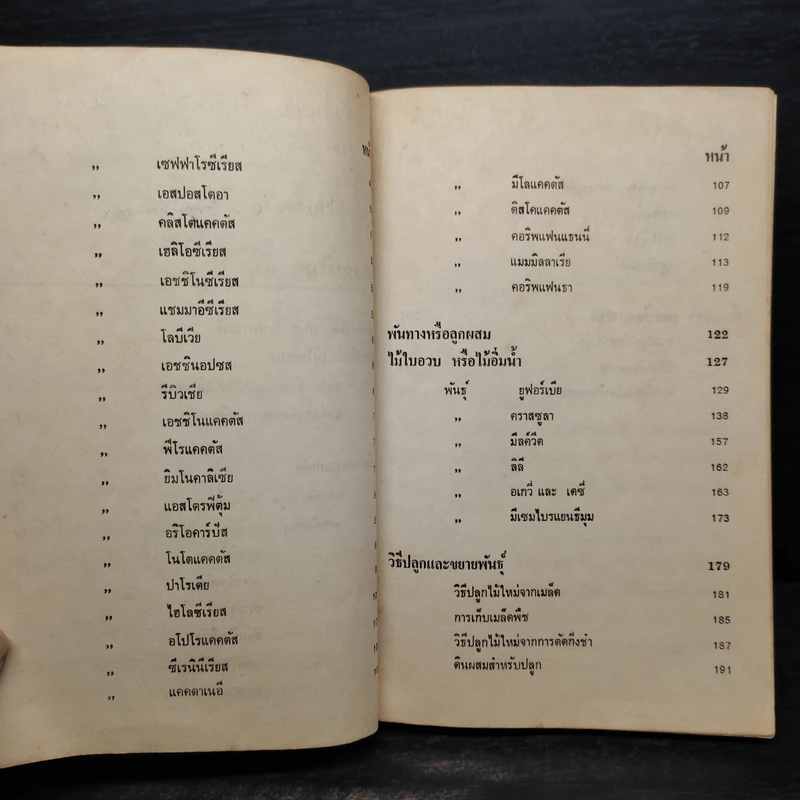 หน้
,, เซฟฟาโรซีเรียส
,, เอสปอสโตอา
,, คลิสโตแคคตัส
,, เฮลิโอซีเรียส
,, เอชชิโนซีเรียส
,, แชมมาอีซีเรียส
,, โลบีเวีย
,, เอชชินอปซส
,, รีบิวเชีย
,, เอชชิโนแคคตัส
,, ฟีโรแคคตัส
,, ยิมโนคาลิเซีย
,, แอสโตรฟีตุ้ม
,, อริโอคาร์ปัส
,, โนโตแคคตัส
,, ปาโรเดีย
,, ไฮโลซีเรียส
,, อโปโรแคคตัส
,, ซีเรนินีเรียส
,, แคคตาเนอี
หน้า
,, มีโลแคคตัส 107
,, ดิสโคแคคตัส 109
,, คอริพแฟนแธนนี่ 112
,, แมมมิลลาเรีย 113
,, คอริพแฟนธา 119
พันทางหรือลูกผสม 122
ไม้ใบอวบ หรือไม้อิ่มน้ำ 127
พันธุ์ ยูฟอร์เบีย 129
,, คราสซูลา 138
,, มีลค์วีด 157
,, ลิลี 162
,, อเกวี่ และ เดซี่ 163
,, มีเซมไบรแยนธีมุม 173
วิธีปลูกและขยายพันธุ์ 179
วิธีปลูกไม้ใหม่จากเมล็ด 181
การเก็บเมล็ดพืช 185
วิธีปลูกไม้ใหม่จากการตัดกิ่งชำ 187
ดินผสมสำหรับปลูก 191